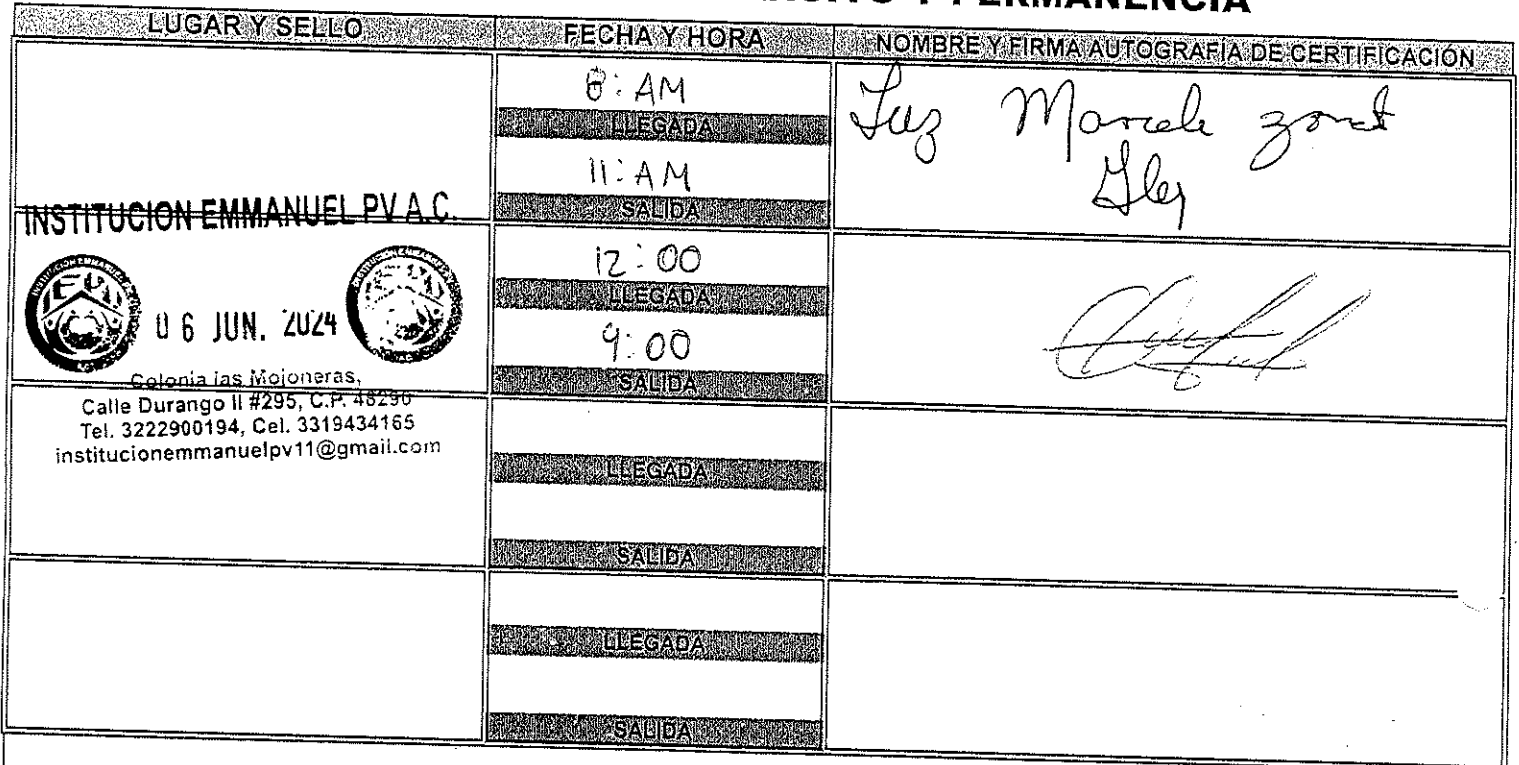 Y PERMANENCIA
LUGAR Y SELLO
FECHA Y HORA
NOMBRE Y FIRMA AUTOGRAFÍA DE CERTIFICACIÓN
8: AM
LLEGADA
11: AM
SALIDA
Luz
INSTITUCION EMMANUEL PV A.C.
06 JUN. 2024
Colonia las Mojoneras,
Calle Durango II #295, C.P. 48290
Tel. 3222900194, Cel. 3319434165
institucionemmanuelpv11@gmail.com
12:00
LLEGADA
9:00
SALIDA
LLEGADA
SALIDA
LLEGADA
SALIDA